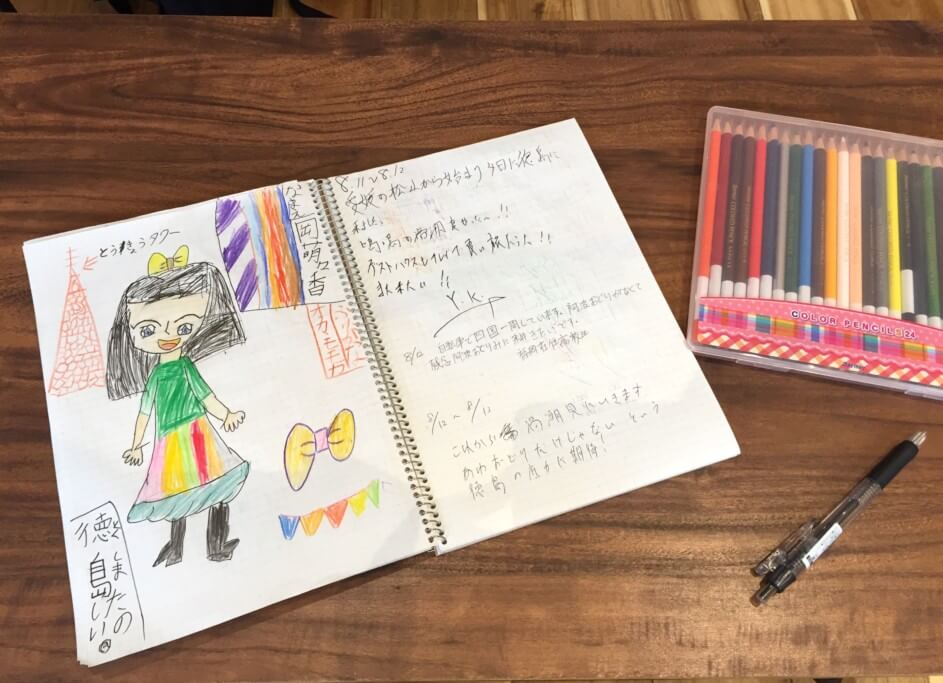 とうきょうタワー
岡萌香
オカモエカ
徳島
たのしい。
8.11〜8.12
愛媛の松山から始まり 今日に徳島に
到达
鳴海の渦潮良かったー!!
ゲストハウスもキレイで良い旅だった!!
また来たい!!
Y.K.
8/12 自転車で四国一周しています。阿波おどりがなくて
残念 阿波おどりみに来きたいです。
8/12 〜 8/12
これから 渦潮見にいきます
あわおどりだけじゃない という
徳島の底力に期待!
COLOR PENCILS 24